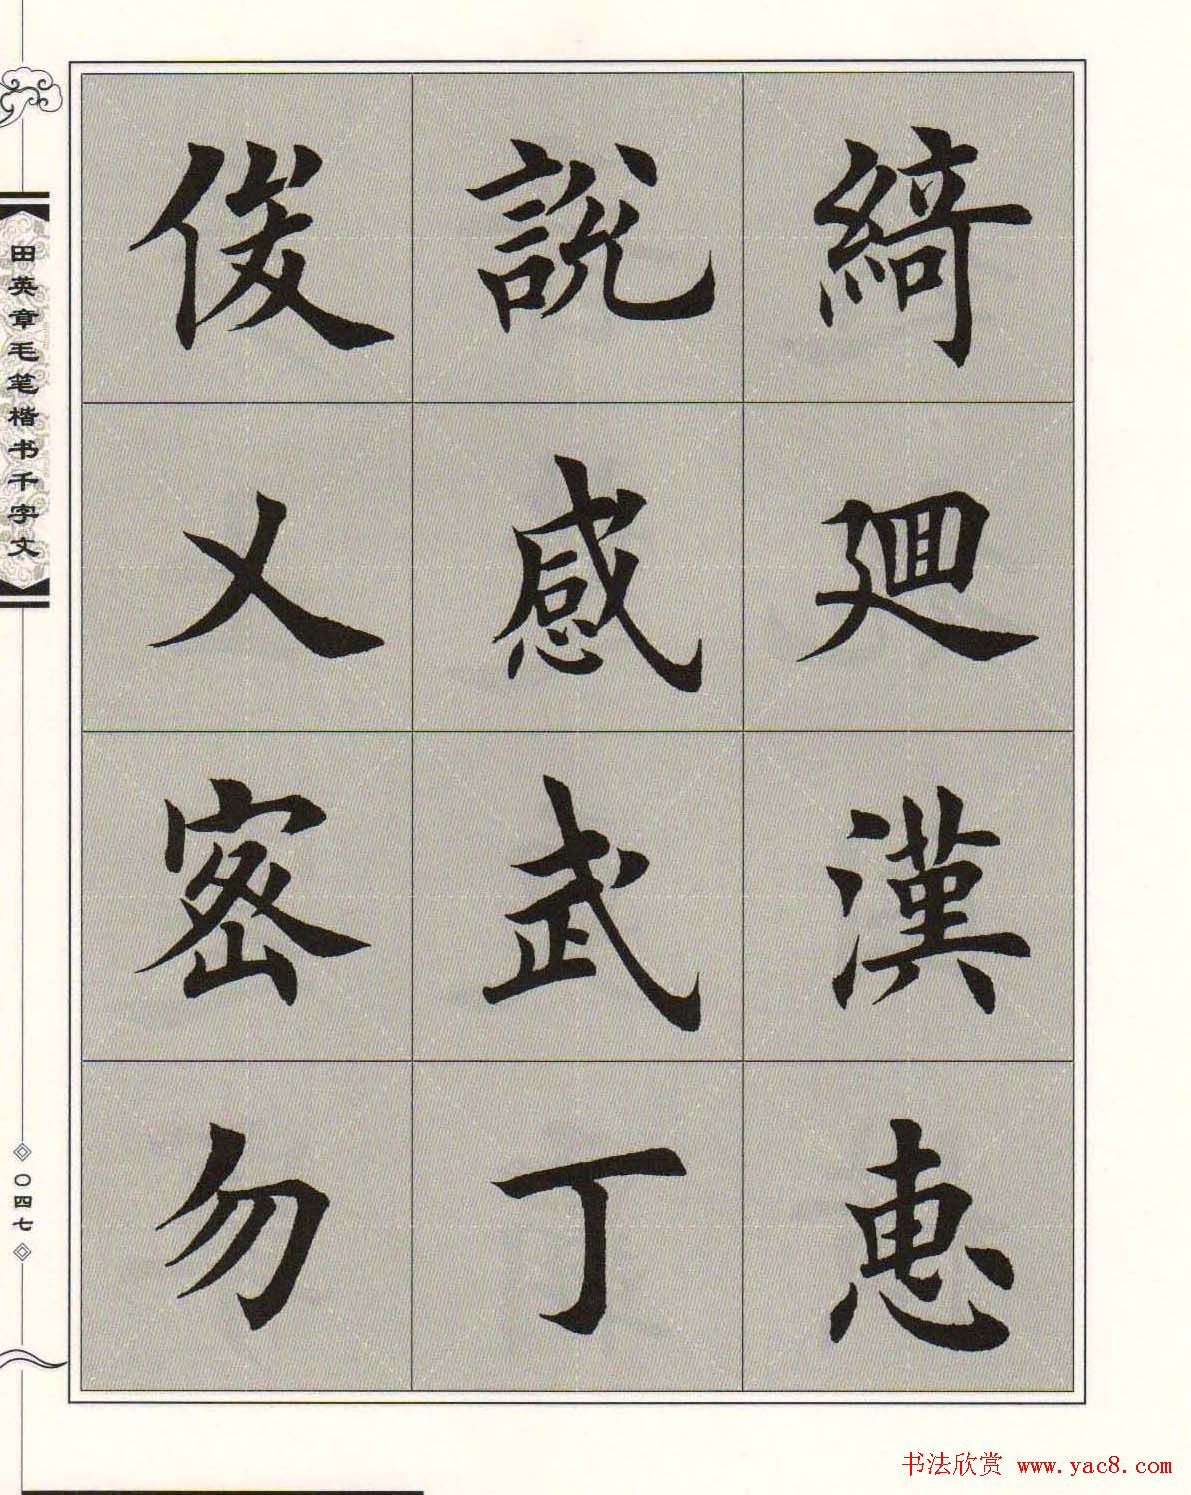 綺迴漢惠
說感武丁
俊乂密勿
田英章毛笔楷书千字文
〇四七
书法欣赏 www.yac8.com